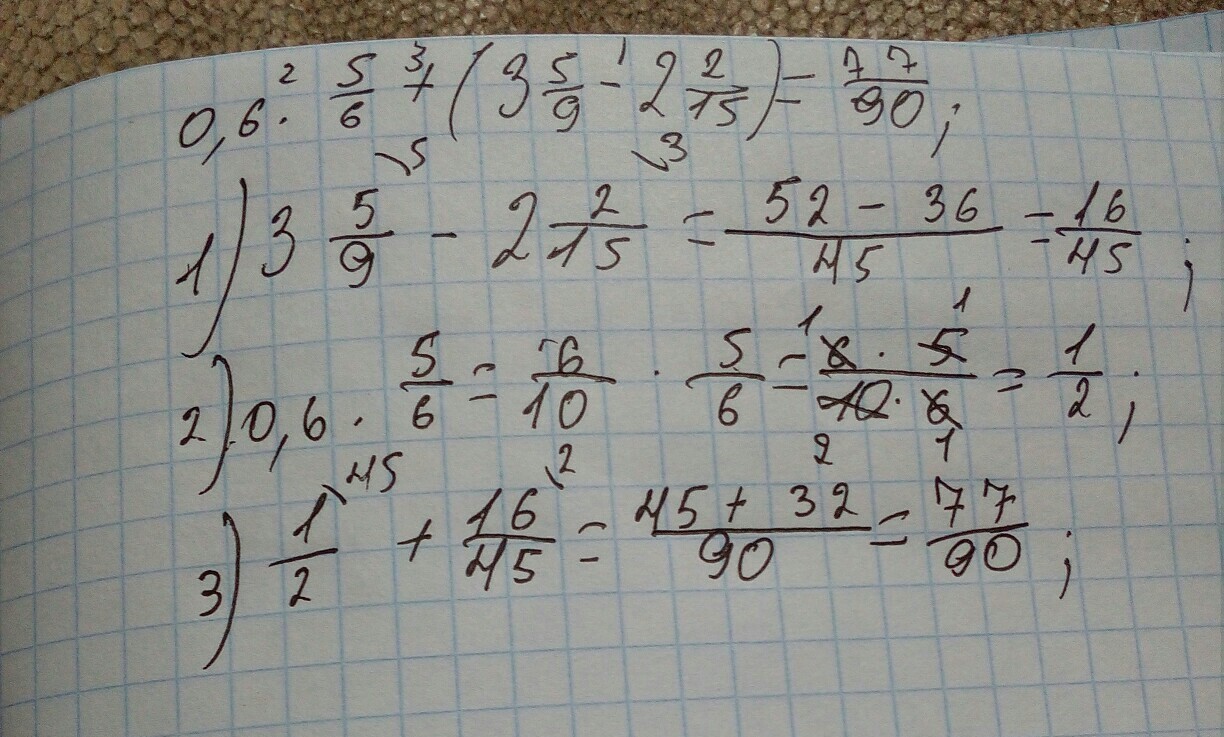 0,6 ·² 5/6 +³ (3 5/9 -¹ 2 2/15) = 77/90;
1) 3 5/9 \5 - 2 2/15 \3 = (52 - 36)/45 = 16/45;
2) 0,6 · 5/6 = 6/10 · 5/6 = (6 ¹ · 5 ¹)/(10 ₂ · 6 ₁) = 1/2;
3) 1/2 \45 + 16/45 \2 = (45 + 32)/90 = 77/90;